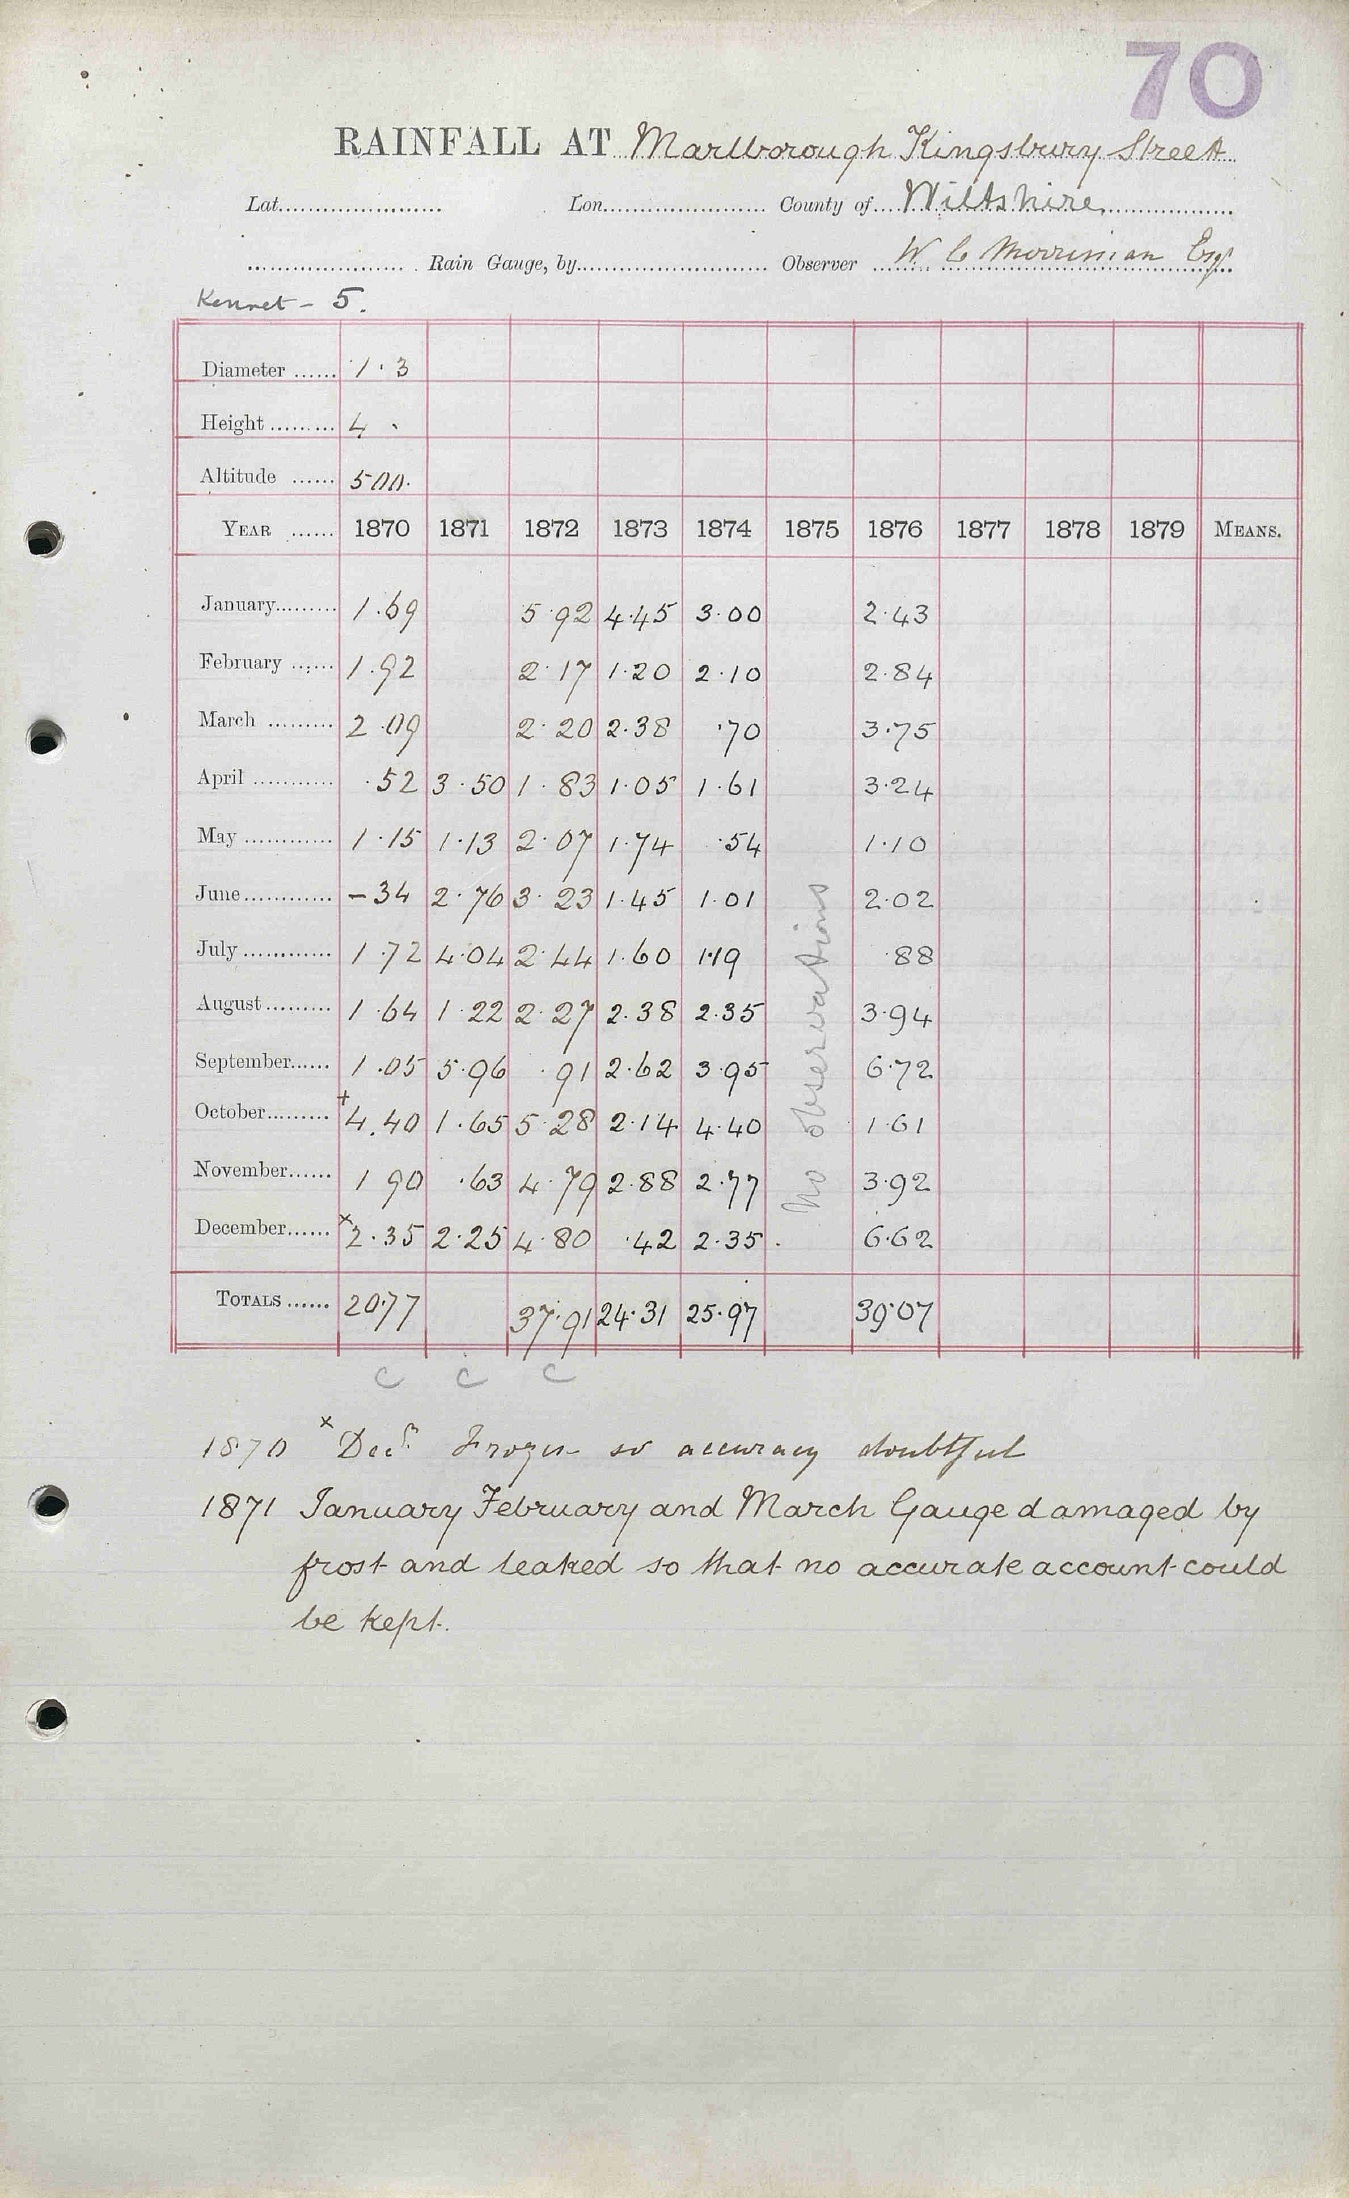 70
RAINFALL AT Marlborough Kingsbury Street
Lat. Lon. County of Wiltshire
Rain Gauge, by Observer W C Merriman Esq
Kennet - 5.
Diameter ...... 1.3
Height ......... 4.
Altitude ...... 500.
YEAR ...... 1870 1871 1872 1873 1874 1875 1876 1877 1878 1879 MEANS.
January......... 1.69 5.92 4.45 3.00 2.43
February ...... 1.92 2.17 1.20 2.10 2.84
March ......... 2.09 2.20 2.38 .70 3.75
April ............ .52 3.50 1.83 1.05 1.61 3.24
May ............ 1.15 1.13 2.07 1.74 .54 1.10
June............ -34 2.76 3.23 1.45 1.01 2.02
July ............ 1.72 4.04 2.44 1.60 1.19 .88
August......... 1.64 1.22 2.27 2.38 2.35 3.94
September...... 1.05 5.96 .91 2.62 3.95 6.72
October......... +4.40 1.65 5.28 2.14 4.40 1.61
November...... 1 90 .63 4.79 2.88 2.77 3.92
December...... x2.35 2.25 4.80 .42 2.35. 6.62
No observations
TOTALS ...... 20.77 37.91 24.31 25.97 39.07
C C C
1870 x Decr. Frozen so accuracy doubtful
1871 January February and March Gauge damaged by
frost and leaked so that no accurate account could
be kept.